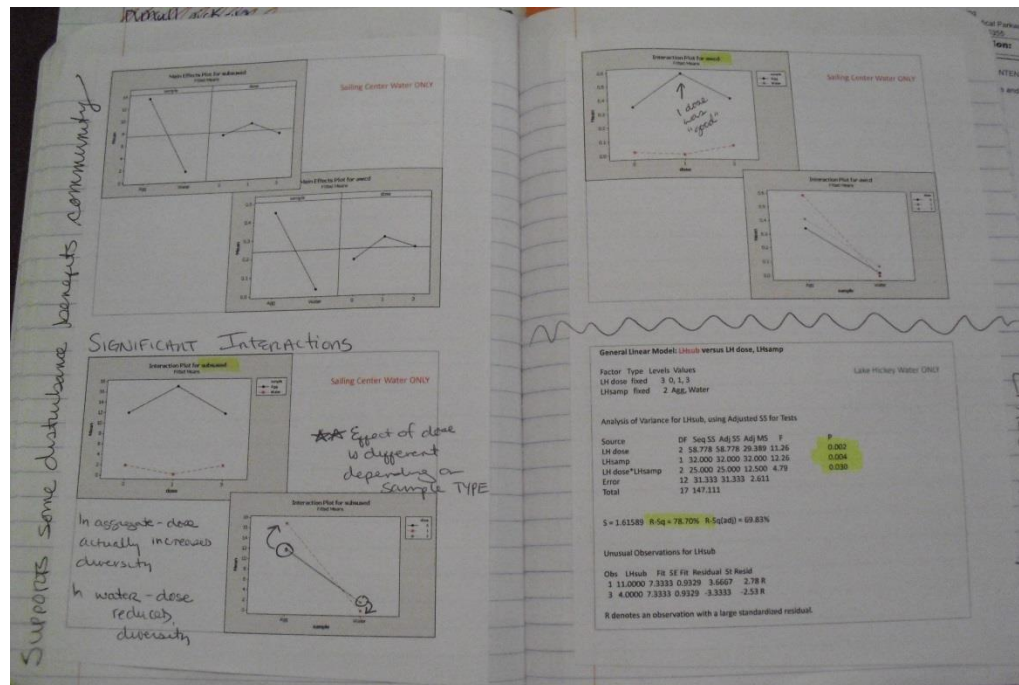 Supports some disturbance benefits community
Main Effects Plot for subsused
Fitted Means
sample
dose
Mean
Agg
Water
0
1
3
Sailing Center Water ONLY
Main Effects Plot for awcd
Fitted Means
sample
dose
Mean
Agg
Water
0
1
3
SIGNIFICANT InterActions
Interaction Plot for subsused
Fitted Means
Mean
dose
Sailing Center Water ONLY
Effect of dose
is different
depending on
Sample TYPE
In aggregate - dose
actually increased
diversity
In water - dose
reduced
diversity
Interaction Plot for subsused
Fitted Means
Mean
Agg
Water
sample
Interaction Plot for awcd
Fitted Means
Mean
dose
1 dose
was
"good"
Sailing Center Water ONLY
Interaction Plot for awcd
Fitted Means
Mean
Agg
Water
sample
General Linear Model: LHsub versus LH dose, LHsamp
Lake Hickey Water ONLY
Factor Type Levels Values
LH dose fixed 3 0, 1, 3
LHsamp fixed 2 Agg, Water
Analysis of Variance for LHsub, using Adjusted SS for Tests
Source DF Seq SS Adj SS Adj MS F P
LH dose 2 58.778 58.778 29.389 11.26 0.002
LHsamp 1 32.000 32.000 32.000 12.26 0.004
LH dose*LHsamp 2 25.000 25.000 12.500 4.79 0.030
Error 12 31.333 31.333 2.611
Total 17 147.111
S = 1.61589 R-Sq = 78.70% R-Sq(adj) = 69.83%
Unusual Observations for LHsub
Obs LHsub Fit SE Fit Residual St Resid
1 11.0000 7.3333 0.9329 3.6667 2.78 R
3 4.0000 7.3333 0.9329 -3.3333 -2.53 R
R denotes an observation with a large standardized residual.